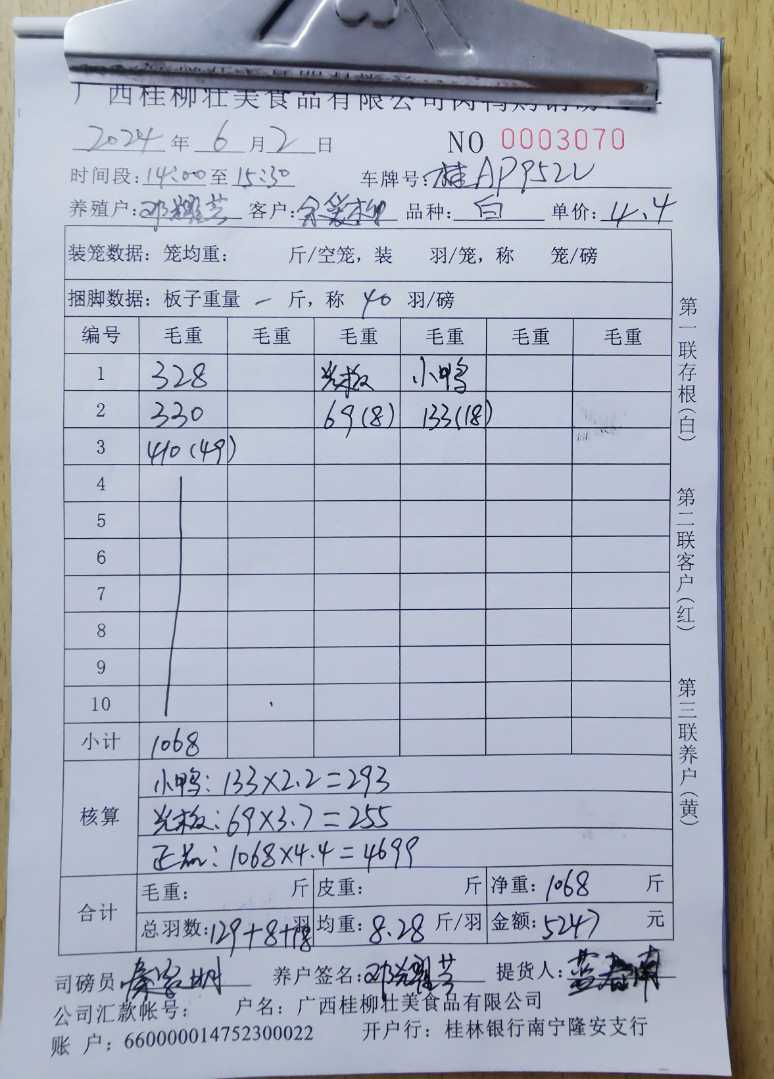 广西桂柳壮美食品有限公司肉鸭购销
2024 年 6 月 2 日 NO 0003070
时间段: 14:00 至 15:30 车牌号: 桂AP952U
养殖户: 邓耀芸 客户: 品种: 白 单价: 4.4
装笼数据: 笼均重: 斤/空笼, 装 羽/笼, 称 笼/磅
捆脚数据: 板子重量 一 斤, 称 40 羽/磅
编号 毛重 毛重 毛重 毛重 毛重 毛重
1 328 光板 小鸭
2 330 69(8) 133(18)
3 410(49)
4
5
6
7
8
9
10
小计 1068
核算
小鸭: 133×2.2=293
光板: 69×3.7=255
正品: 1068×4.4=4699
合计
毛重: 斤 皮重: 斤 净重: 1068 斤
总羽数: 129+8+18 羽 均重: 8.28 斤/羽 金额: 5247 元
司磅员 养户签名: 邓耀芸 提货人: 蓝春南
公司汇款帐号: 户名: 广西桂柳壮美食品有限公司
账 户: 660000014752300022 开户行: 桂林银行南宁隆安支行
第一联存根(白)
第二联客户(红)
第三联养户(黄)